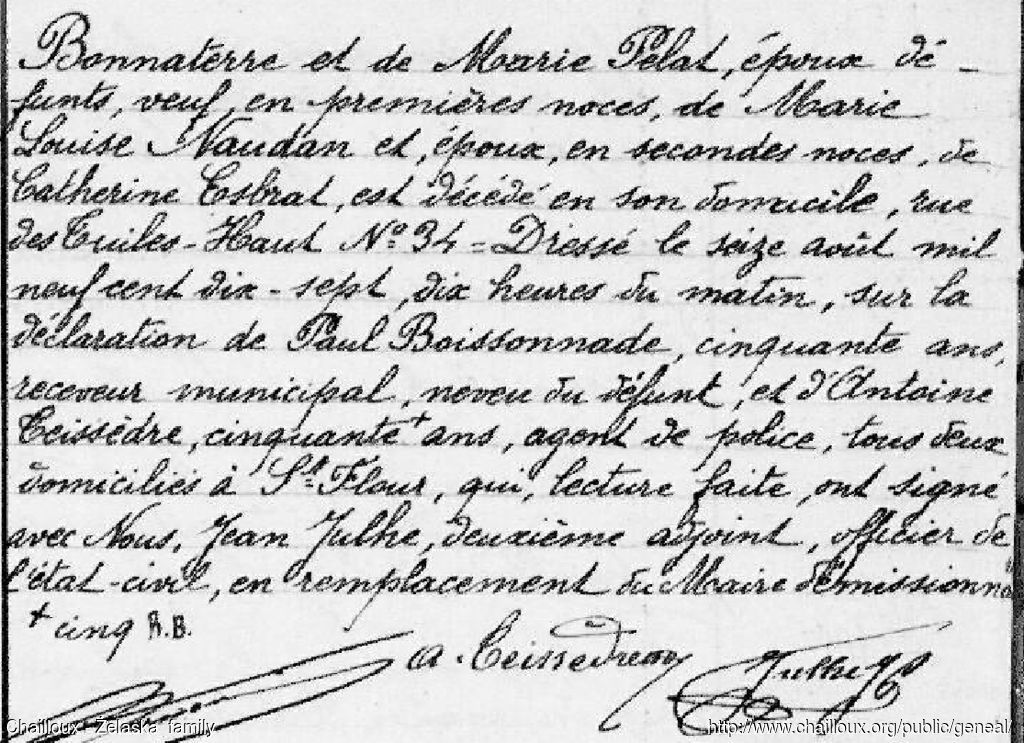 Bonnaterre et de Marie Pelat, époux dé-
funts, veuf, en premières noces, de Marie
Louise Naudan et, époux, en secondes noces, de
Catherine Esbrat, est décédé en son domicile, rue
des Tuiles-Haut Nº 34 = Dressé le seize août mil
neuf cent dix-sept, dix heures du matin, sur la
déclaration de Paul Boissonnade, cinquante ans,
receveur municipal, neveu du défunt, et d'Antoine
Teissèdre, cinquante + ans, agent de police, tous deux
domiciliés à St. Flour, qui, lecture faite, ont signé
avec Nous, Jean Julhe, deuxième adjoint, officier de
l'état-civil, en remplacement du Maire démissionn
+ cinq R.B.
A. Teissedre
Julhe
Chailloux - Zelaska family
http://www.chailloux.org/public/geneal/